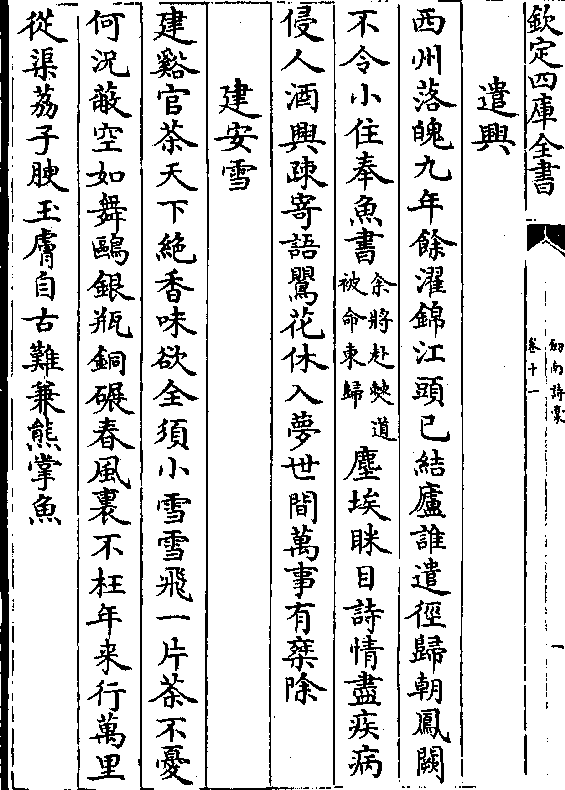 欽定四庫全書
劍南詩藁
卷十一
一
遣興
西州落魄九年餘濯錦江頭已結廬誰遣徑歸朝鳳闕
不令小住奉魚書余將赴僰道被命東歸塵埃眯目詩情盡疾病
侵人酒興疎寄語鸎花休入夢世間萬事有乘除
建安雪
建谿官茶天下絶香味欲全須小雪雪飛一片茶不憂
何況蔽空如舞鷗銀瓶銅碾春風裏不枉年来行萬里
從渠荔子腴玉膚自古難兼熊掌魚